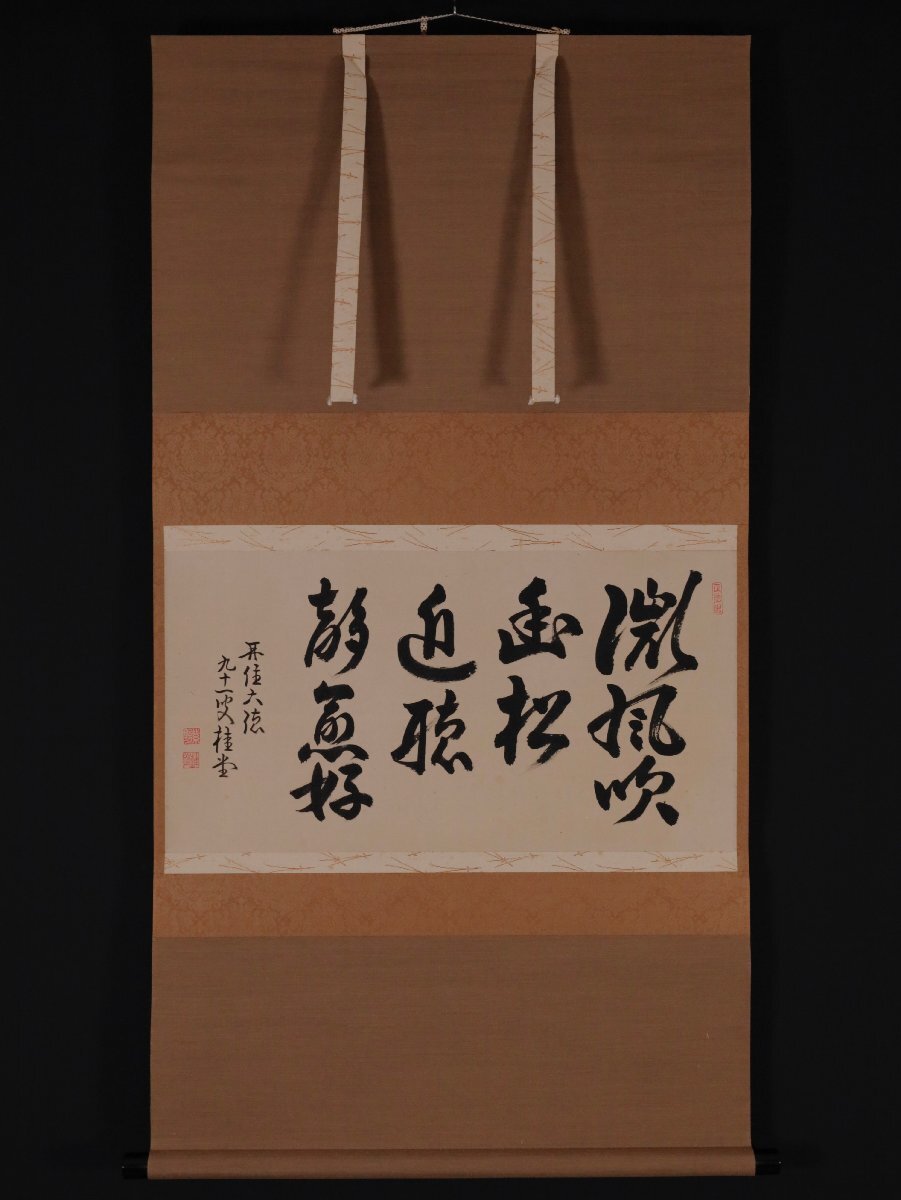 微風吹
幽松
近聴
聲愈好
再住大徳
九十一叟桂堂